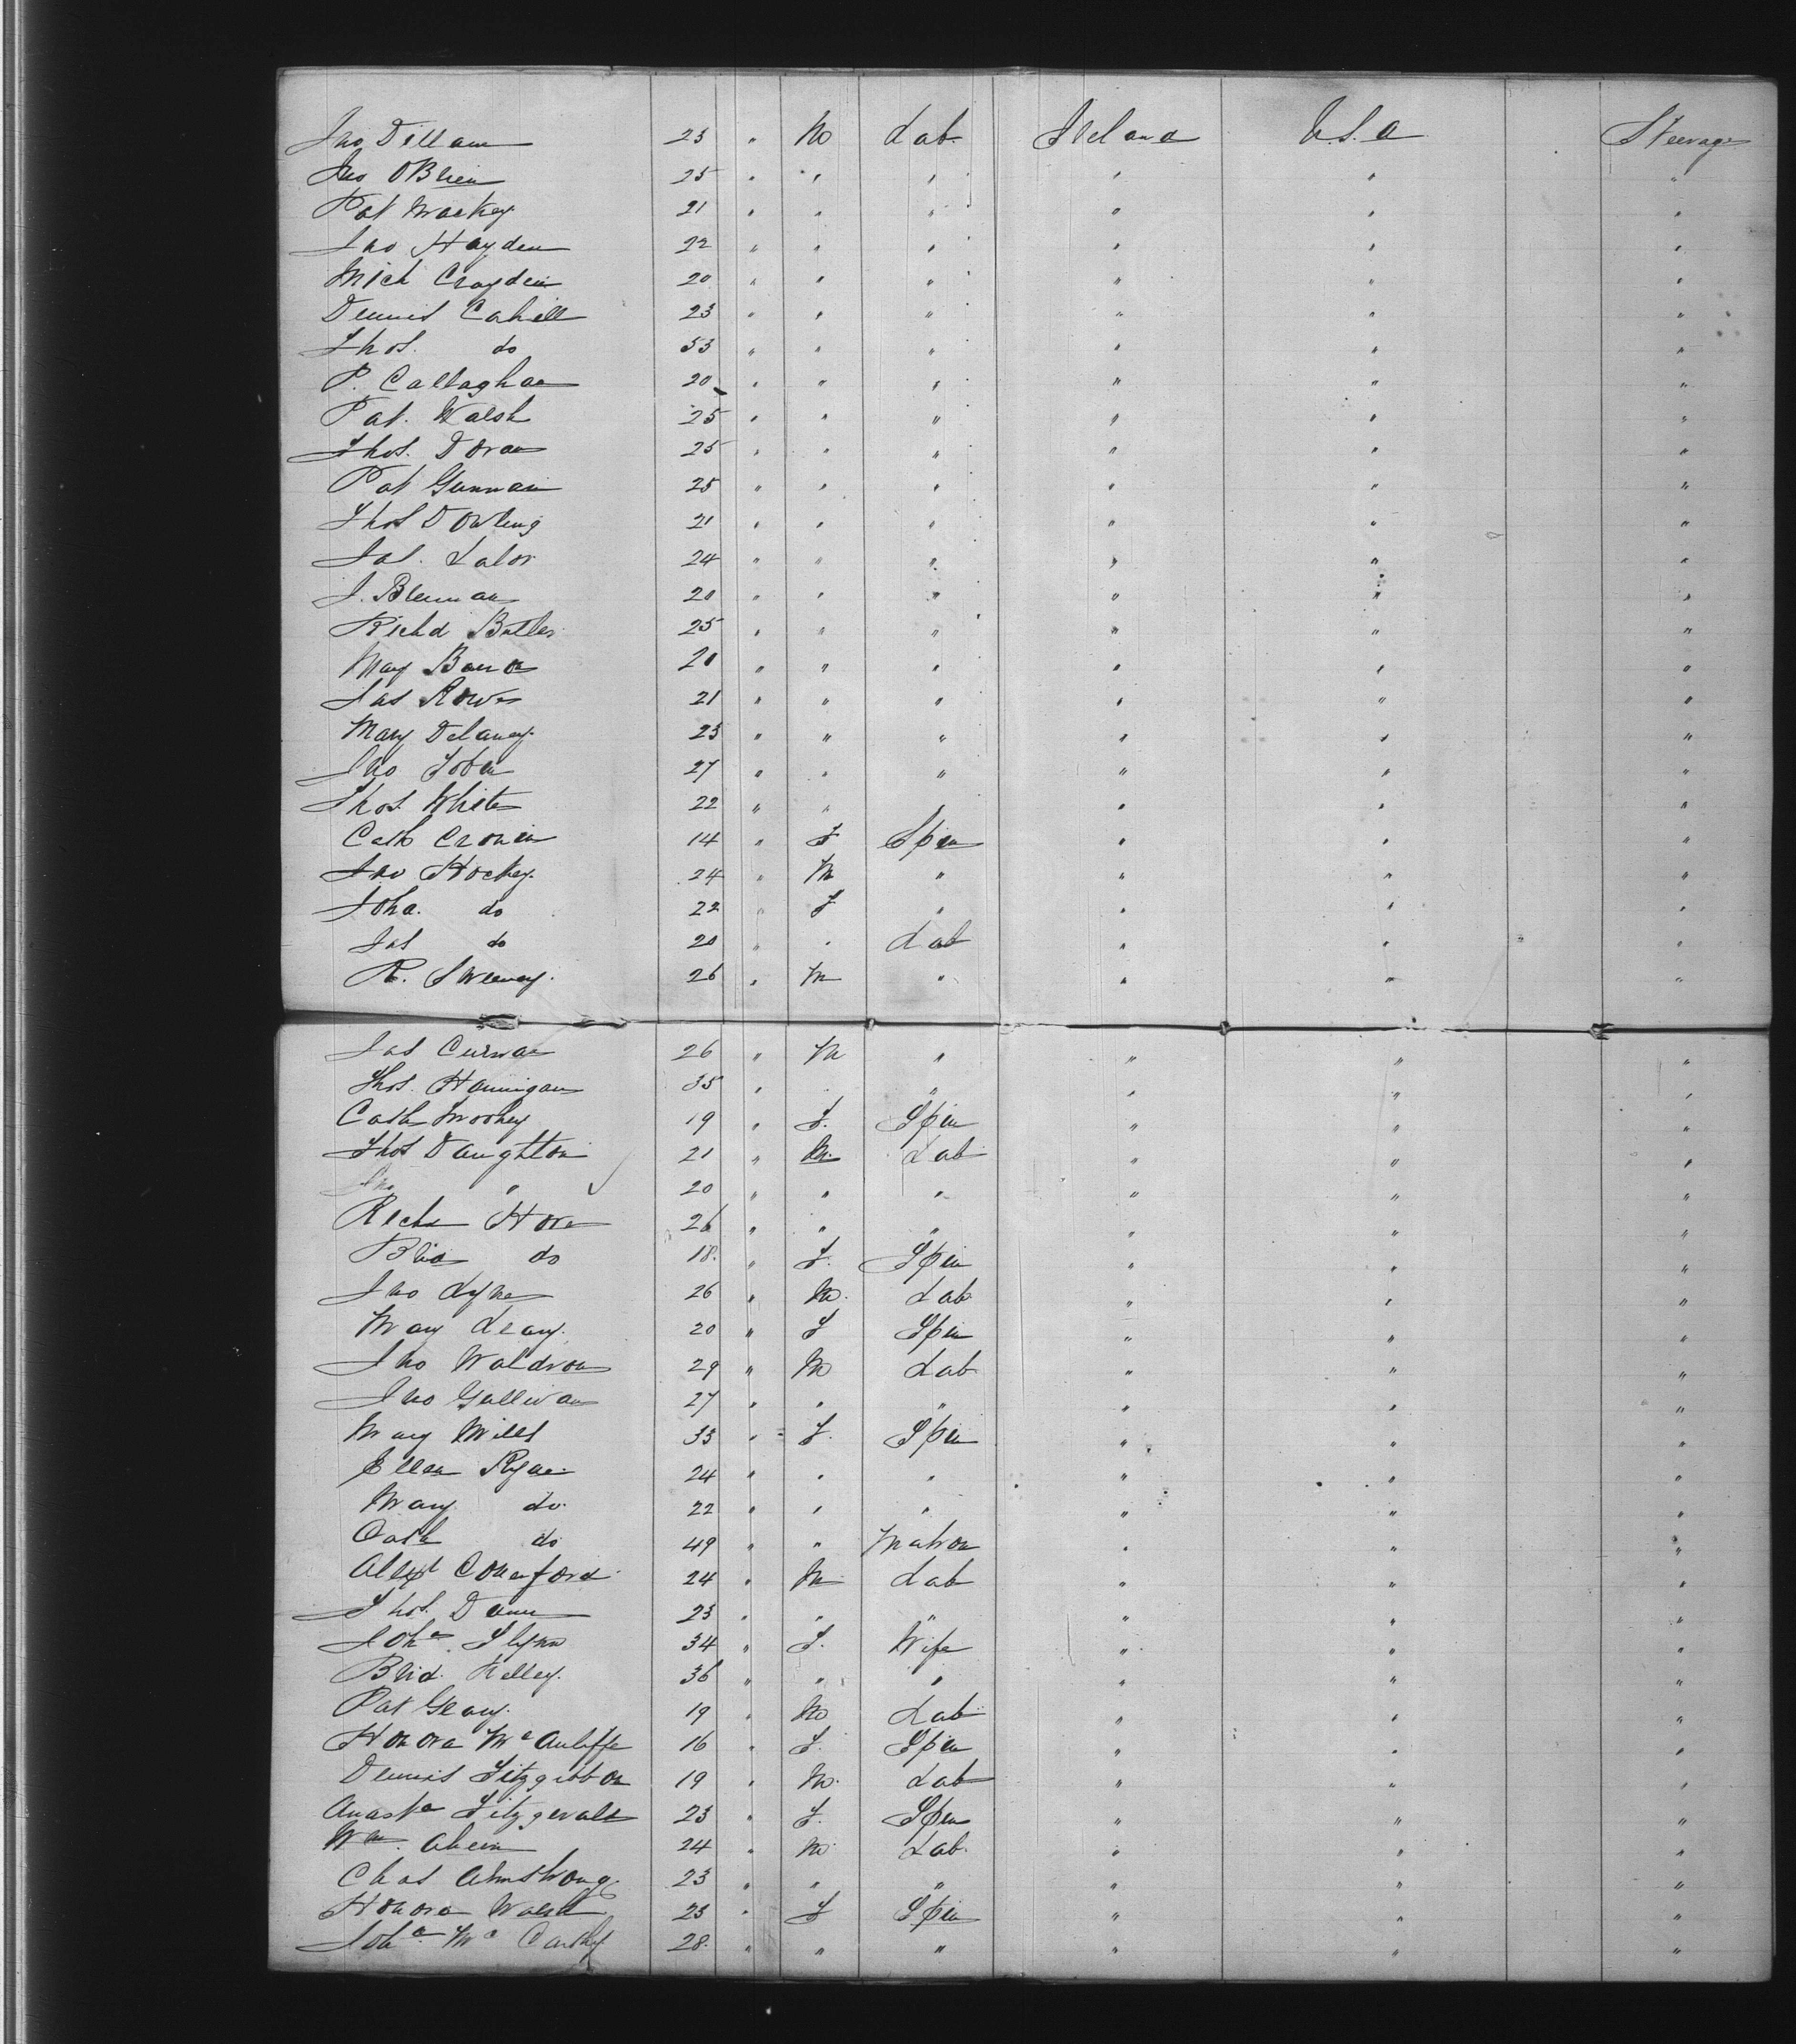 Jno Dillan 23 " M Lab. Ireland U.S.A Steerage
Jno OBrien 25 " " " " " "
Pat Mackey 21 " " " " " "
Jno Hayden 22 " " " " " "
Mich Croyden 20 " " " " " "
Dennis Cahill 23 " " " " " "
Thos. do 53 " " " " " "
P. Callaghan 20 " " " " " "
Pat. Walsh 25 " " " " " "
Thos. Doran 25 " " " " " "
Pat 25 " " " " " "
Thos Dowling 21 " " " " " "
Jas. Lalor 24 " " " " " "
J. Brennan 20 " " " " " "
Richd Butler 25 " " " " " "
Mary 20 " " " " " "
Jas Rowe 21 " " " " " "
Mary Delaney 23 " " " " " "
Jno Tobin 27 " " " " " "
Thos. White 22 " " " " "
Cath Cronin 14 " F Spin " " "
Jno Hockey 24 " M " " " "
Joha. do 22 " F " " " "
Jas do 20 " " Lab " " "
R. Sweeney. 26 " M " " " "
Jas Curran 26 " M " " " "
Thos. Hannigan 35 " " " " " "
Cath 19 " F. Spin " " "
Thos Daughton 21 " M. Lab " " "
Jno " 20 " " " " " "
Richd Hore 26 " " " " " "
Brid do 18. " F. Spin " " "
Jno Lyne 26 " M. Lab " " "
Mary Leary. 20 " F Spin " " "
Jno Waldron 29 " M Lab " " "
Jno Gallivan 27 " " " " " "
Mary Mills 33 " F. Spin " " "
Ellen Ryan 24 " " " " " "
Mary do. 22 " " " " " "
Cath do 49 " " Matron " " "
Alexd Comerford 24 " M Lab " " "
Thos. Dunn 23 " " " " " "
Joha Flynn 34 " F. Wife " " "
Brid. Kelley. 36 " " " " " "
Pat Geary. 19 " M Lab " " "
Honora McAuliffe 16 " F. Spin " " "
Dennis Fitzgibbon 19 " M. Lab " " "
Anasta Fitzgerald 23 " F. Spin " " "
Wm. Ahern 24 " M Lab. " " "
Chas Armstrong 23 " " " " " "
Honora Walsh 23 " F Spin " " "
Joha Mc Carthy 28. " " " " " "